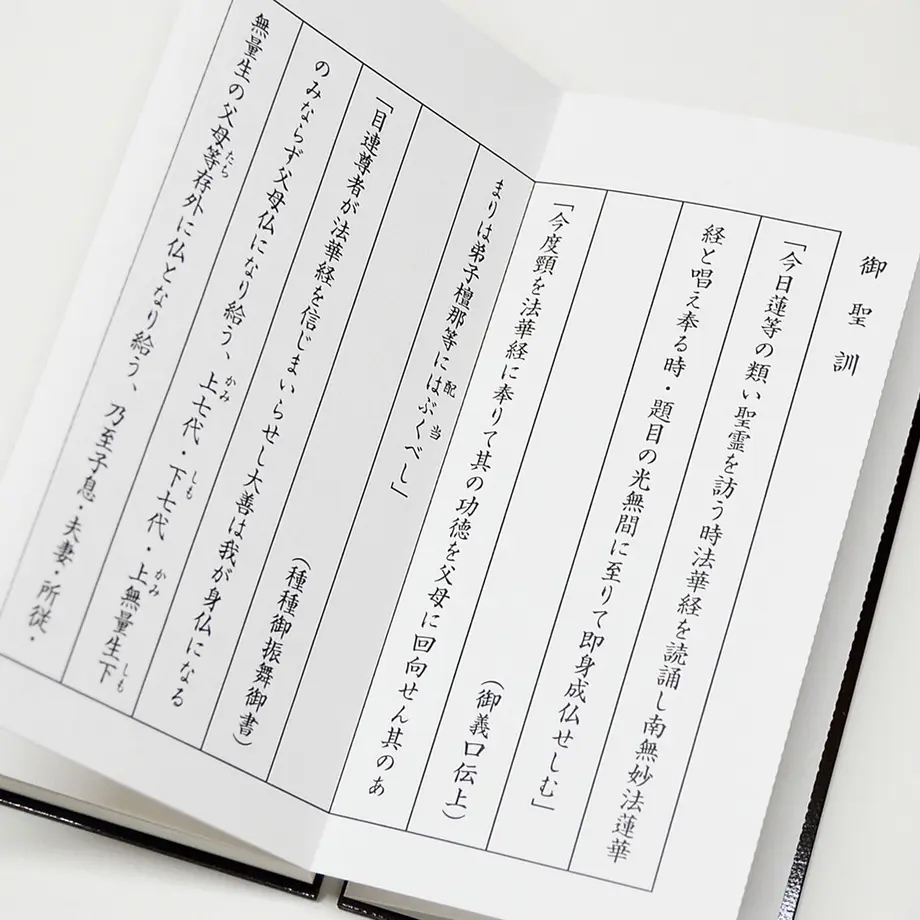 御聖訓
「今日蓮等の類い聖霊を訪う時法華経を読誦し南無妙法蓮華
経と唱え奉る時・題目の光無間に至りて即身成仏せしむ」
（御義口伝上）
「今度頸を法華経に奉りて其の功徳を父母に回向せん其のあ
まりは弟子檀那等にはぶくべし」
配当
（種種御振舞御書）
「目連尊者が法華経を信じまいらせし大善は我が身仏になる
のみならず父母仏になり給う、上七代・下七代・上無量生下
かみ しも かみ しも
無量生の父母等存外に仏となり給う、乃至子息・夫妻・所従・
たら